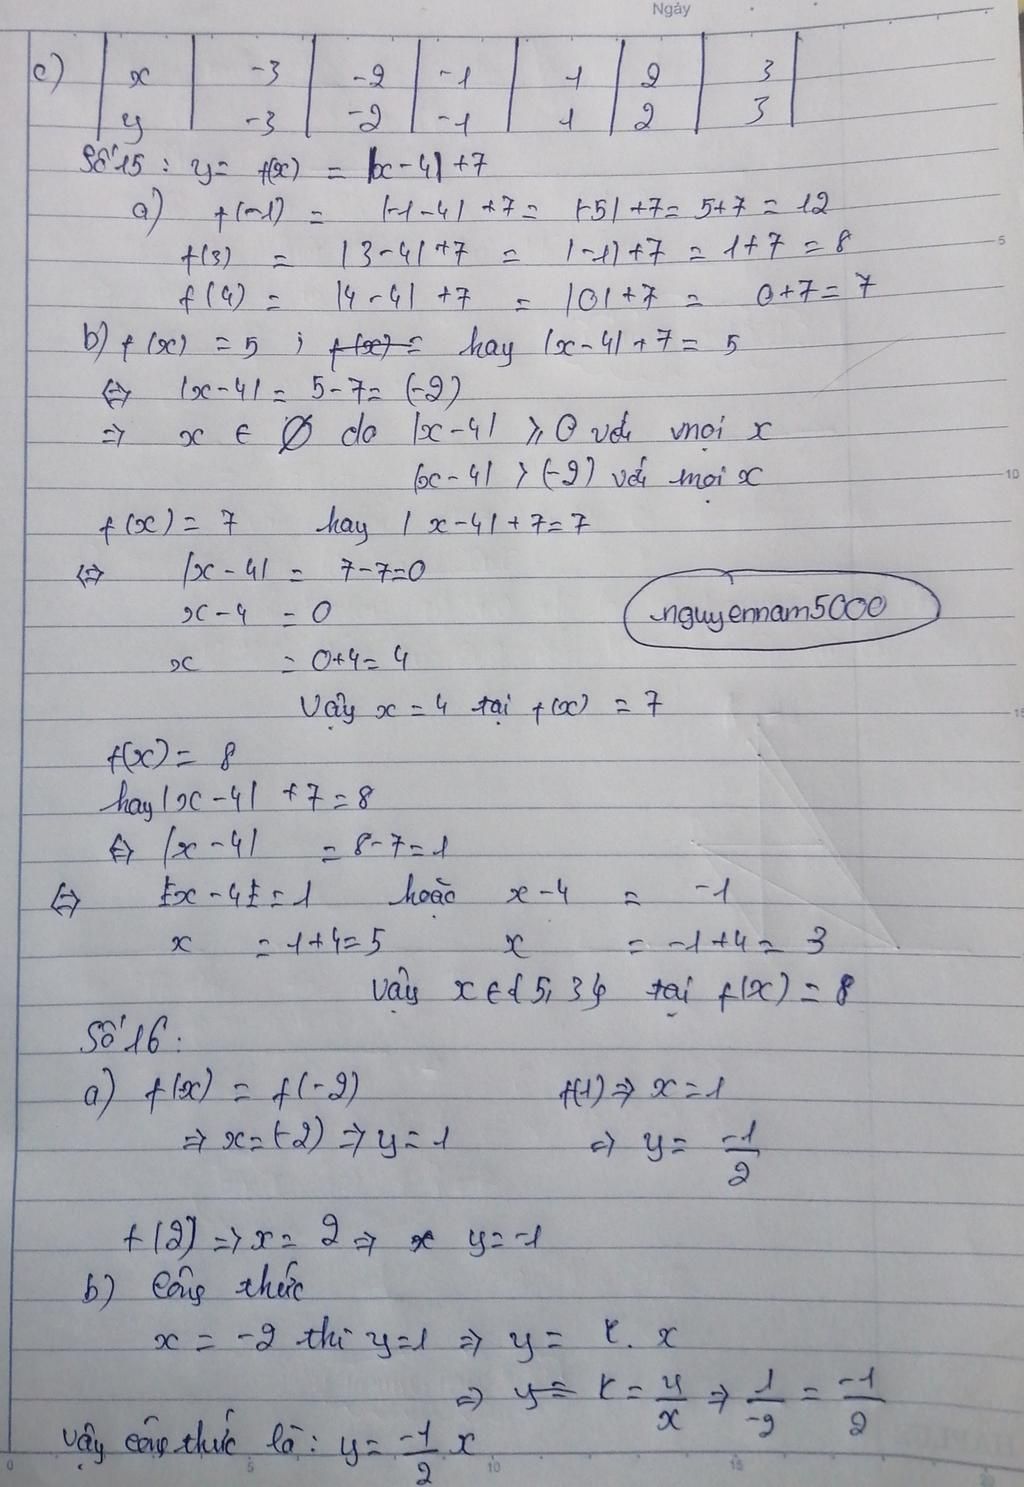 Ngày
c) x -3 -2 -1 1 2 3
y -3 -2 -1 1 2 3
Số 15 : y = f(x) = |x-4| +7
a) f(-1) = |-1-4| +7 = |-5| +7 = 5+7 = 12
f(3) = |3-4| +7 = |-1| +7 = 1+7 = 8
f(4) = |4-4| +7 = |0| +7 = 0+7 = 7
b) f(x) = 5 ; f(x) = hay |x-4| +7 = 5
⇔ |x-4| = 5-7 = (-2)
⇒ x ∈ ∅ do |x-4| ⩾ 0 với mọi x
|x-4| > (-2) với mọi x
f(x) = 7 hay |x-4| +7 = 7
⇔ |x-4| = 7-7=0
x-4 = 0
nguyennam5000
x = 0+4 = 4
Vậy x = 4 tại f(x) = 7
f(x) = 8
hay |x-4| +7 = 8
⇔ |x-4| = 8-7 = 1
⇔ x-4 = 1 hoặc x-4 = -1
x = 1+4 = 5 x = -1+4 = 3
Vậy x ∈ {5; 3} tại f(x) = 8
Số 16:
a) f(x) = f(-2) f(1) ⇒ x = 1
⇒ x = (-2) ⇒ y = 1 ⇒ y = -1/2
f(2) ⇒ x = 2 ⇒ x y = -1
b) Công thức
x = -2 thì y=1 ⇒ y = k. x
⇒ y = k = y/x ⇒ 1/-2 = -1/2
Vậy công thức là: y = -1/2 x
5
10
15
0 5 10 15 20